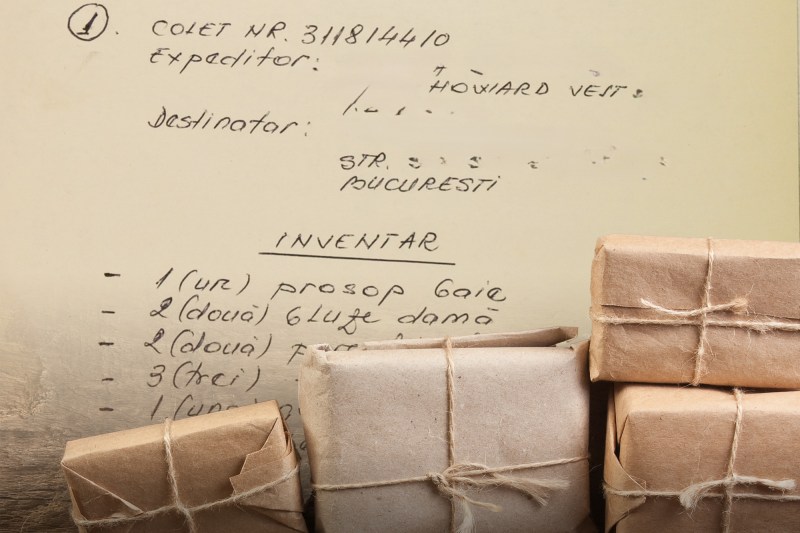 1. COLET NR. 311814410
Expeditor:
HOWARD VEST
Destinatar:
STR.
BUCURESTI
INVENTAR
- 1 (un) prosop baie
- 2 (două) bluze damă
- 2 (două)
- 3 (trei)
- 1